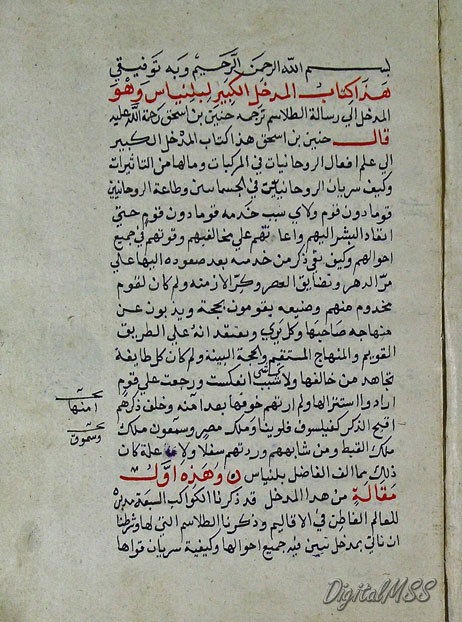 بسم الله الرحمن الرحيم وبه توفيقي
هذا كتاب المدخل الكبير لبلنياس وهو
المدخل الي رسالة الطلاسم ترجمه حنين بن اسحق رحمة الله عليه
قال حنين بن اسحق هذا كتاب المدخل الكبير
الي علم افعال الروحانيات في المركبات وما لها من التاثيرات
وكيف سريان الروحانيين في الجسمانيين وطاعة الروحانيين
قوما دون قوم ولاي سبب خدمه قوما دون قوم حتي
انقاد البشر اليهم واعانتهم علي مخالفيهم وقوتهم في جميع
احوالهم وكيف بقي ذكر من خدمته بعد صعوده اليها علي
مر الدهر وتضايق العصر وكر الازمنه ولم كان لقوم
مخدوم منهم وضيعه يقومون بحجة ويدبون عن
منهاجه صاحبها وكل يري ويعتقد انه علي الطريق
القويم والمنهاج المستقيم والحجة البينة ولم كان كل طايفة
تجاهد من خالفها ولاي سبب انعكست ورجعت علي قوم
ارادوا استنزالها ولم ارتهم خوفها بعد امنه وخلف ذكرهم
اقبح الذكر كفيلسوف فلوبنا وملك مصر وسمعون ملك
ملك القبط ومن شابههم وردتهم سفلا ولاي علة كان
ذلك مما الف الفاضل بلنياس ن وهذه اول
مقالة من هذا المدخل قد ذكرنا الكواكب السبعة مدبرة
للعالم القاطن في الاقاليم وذكرنا الطلاسم التي لها وشرطنا
ان ناتي بمدخل نبين فيه جميع احوالها وكيفية سريان قواها
امنها
DigitalMSS